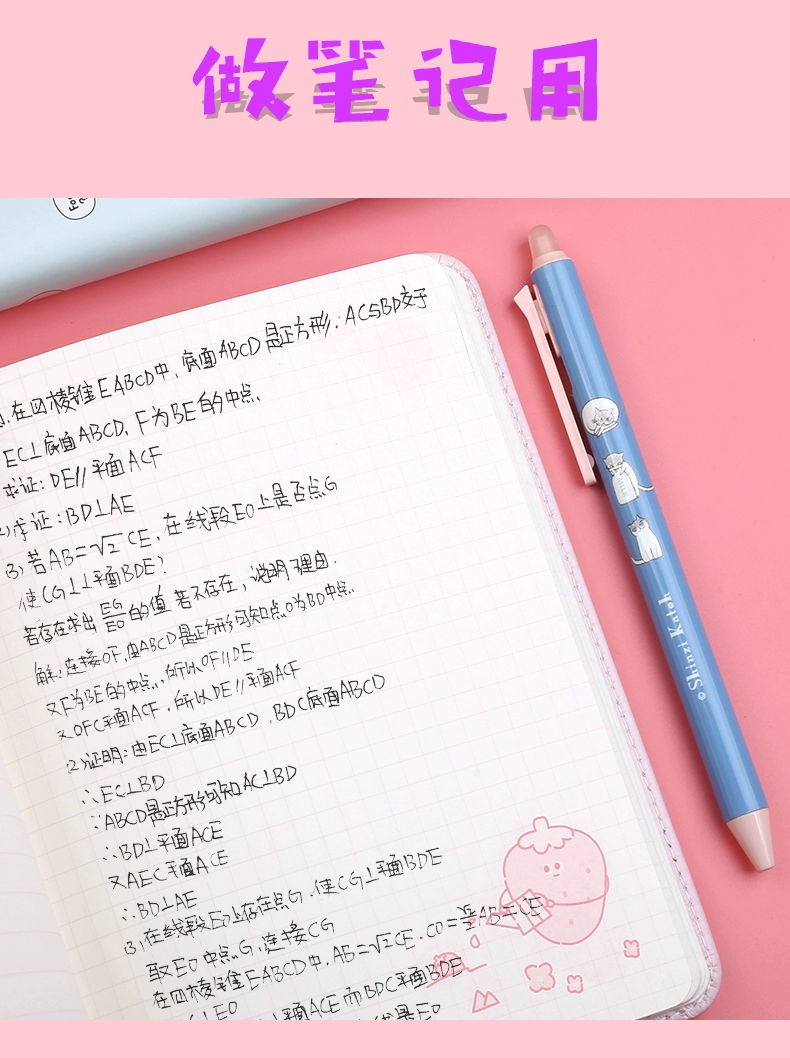 做笔记用
在四棱锥EABCD中，底面ABCD是正方形：AC与BD交于
EC⊥底面ABCD，F为BE的中点.
求证：DE//平面ACF
求证：BD⊥AE
3)若AB=√2CE，在线段EO上是否点G
使CG⊥⊥平面BDE?
若存在求出EG/EO的值 若不存在，说明理由.
解：连接OF，由ABCD是正方形可知点O为BD中点.
又F为BE的中点，所以OF//DE
又OFC平面ACF，所以DE//平面ACF
(2)证明：由EC⊥底面ABCD，BDC底面ABCD
∴EC⊥BD
∵ABCD是正方形可知AC⊥BD
∴BD⊥平面ACE
又AEC平面ACE
∴BD⊥AE
(3)在线段EO上存在点G，使CG⊥平面BDE
取EO中点G，连接CG
在四棱锥EABCD中，AB=√2CE，CO=AB=CE
EO
平面ACE而BDC平面BDE
是EO
©Shinzi Katoh